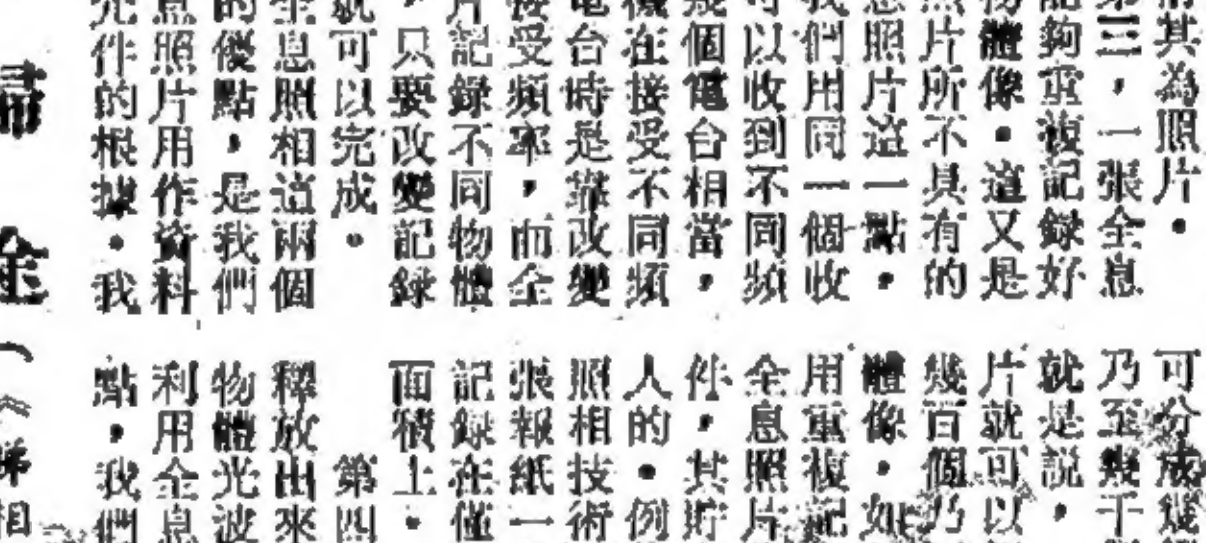 其為照片。
第三，一張全息
夠重複記錄好
物體像。這又是
照片所不具有的
照片這一點。
我們用同一個收
可以收到不同頻
幾個電台相當，
機在接受不同頻
電台時是靠改變
接受頻率，而全
片記錄不同物體
，只要改變記錄
就可以完成。
全息照相這兩個
的優點，是我們
照片用作資料
件的根據。我
可分成幾
乃至幾千
就是説，
片就可以
幾百個乃
體像。如
用重複記
全息照片
件，其貯
人的。例
照相技術
張報紙一
記錄在僅
面積上。
第四
釋放出來
物體光波
利用全息
點，我們